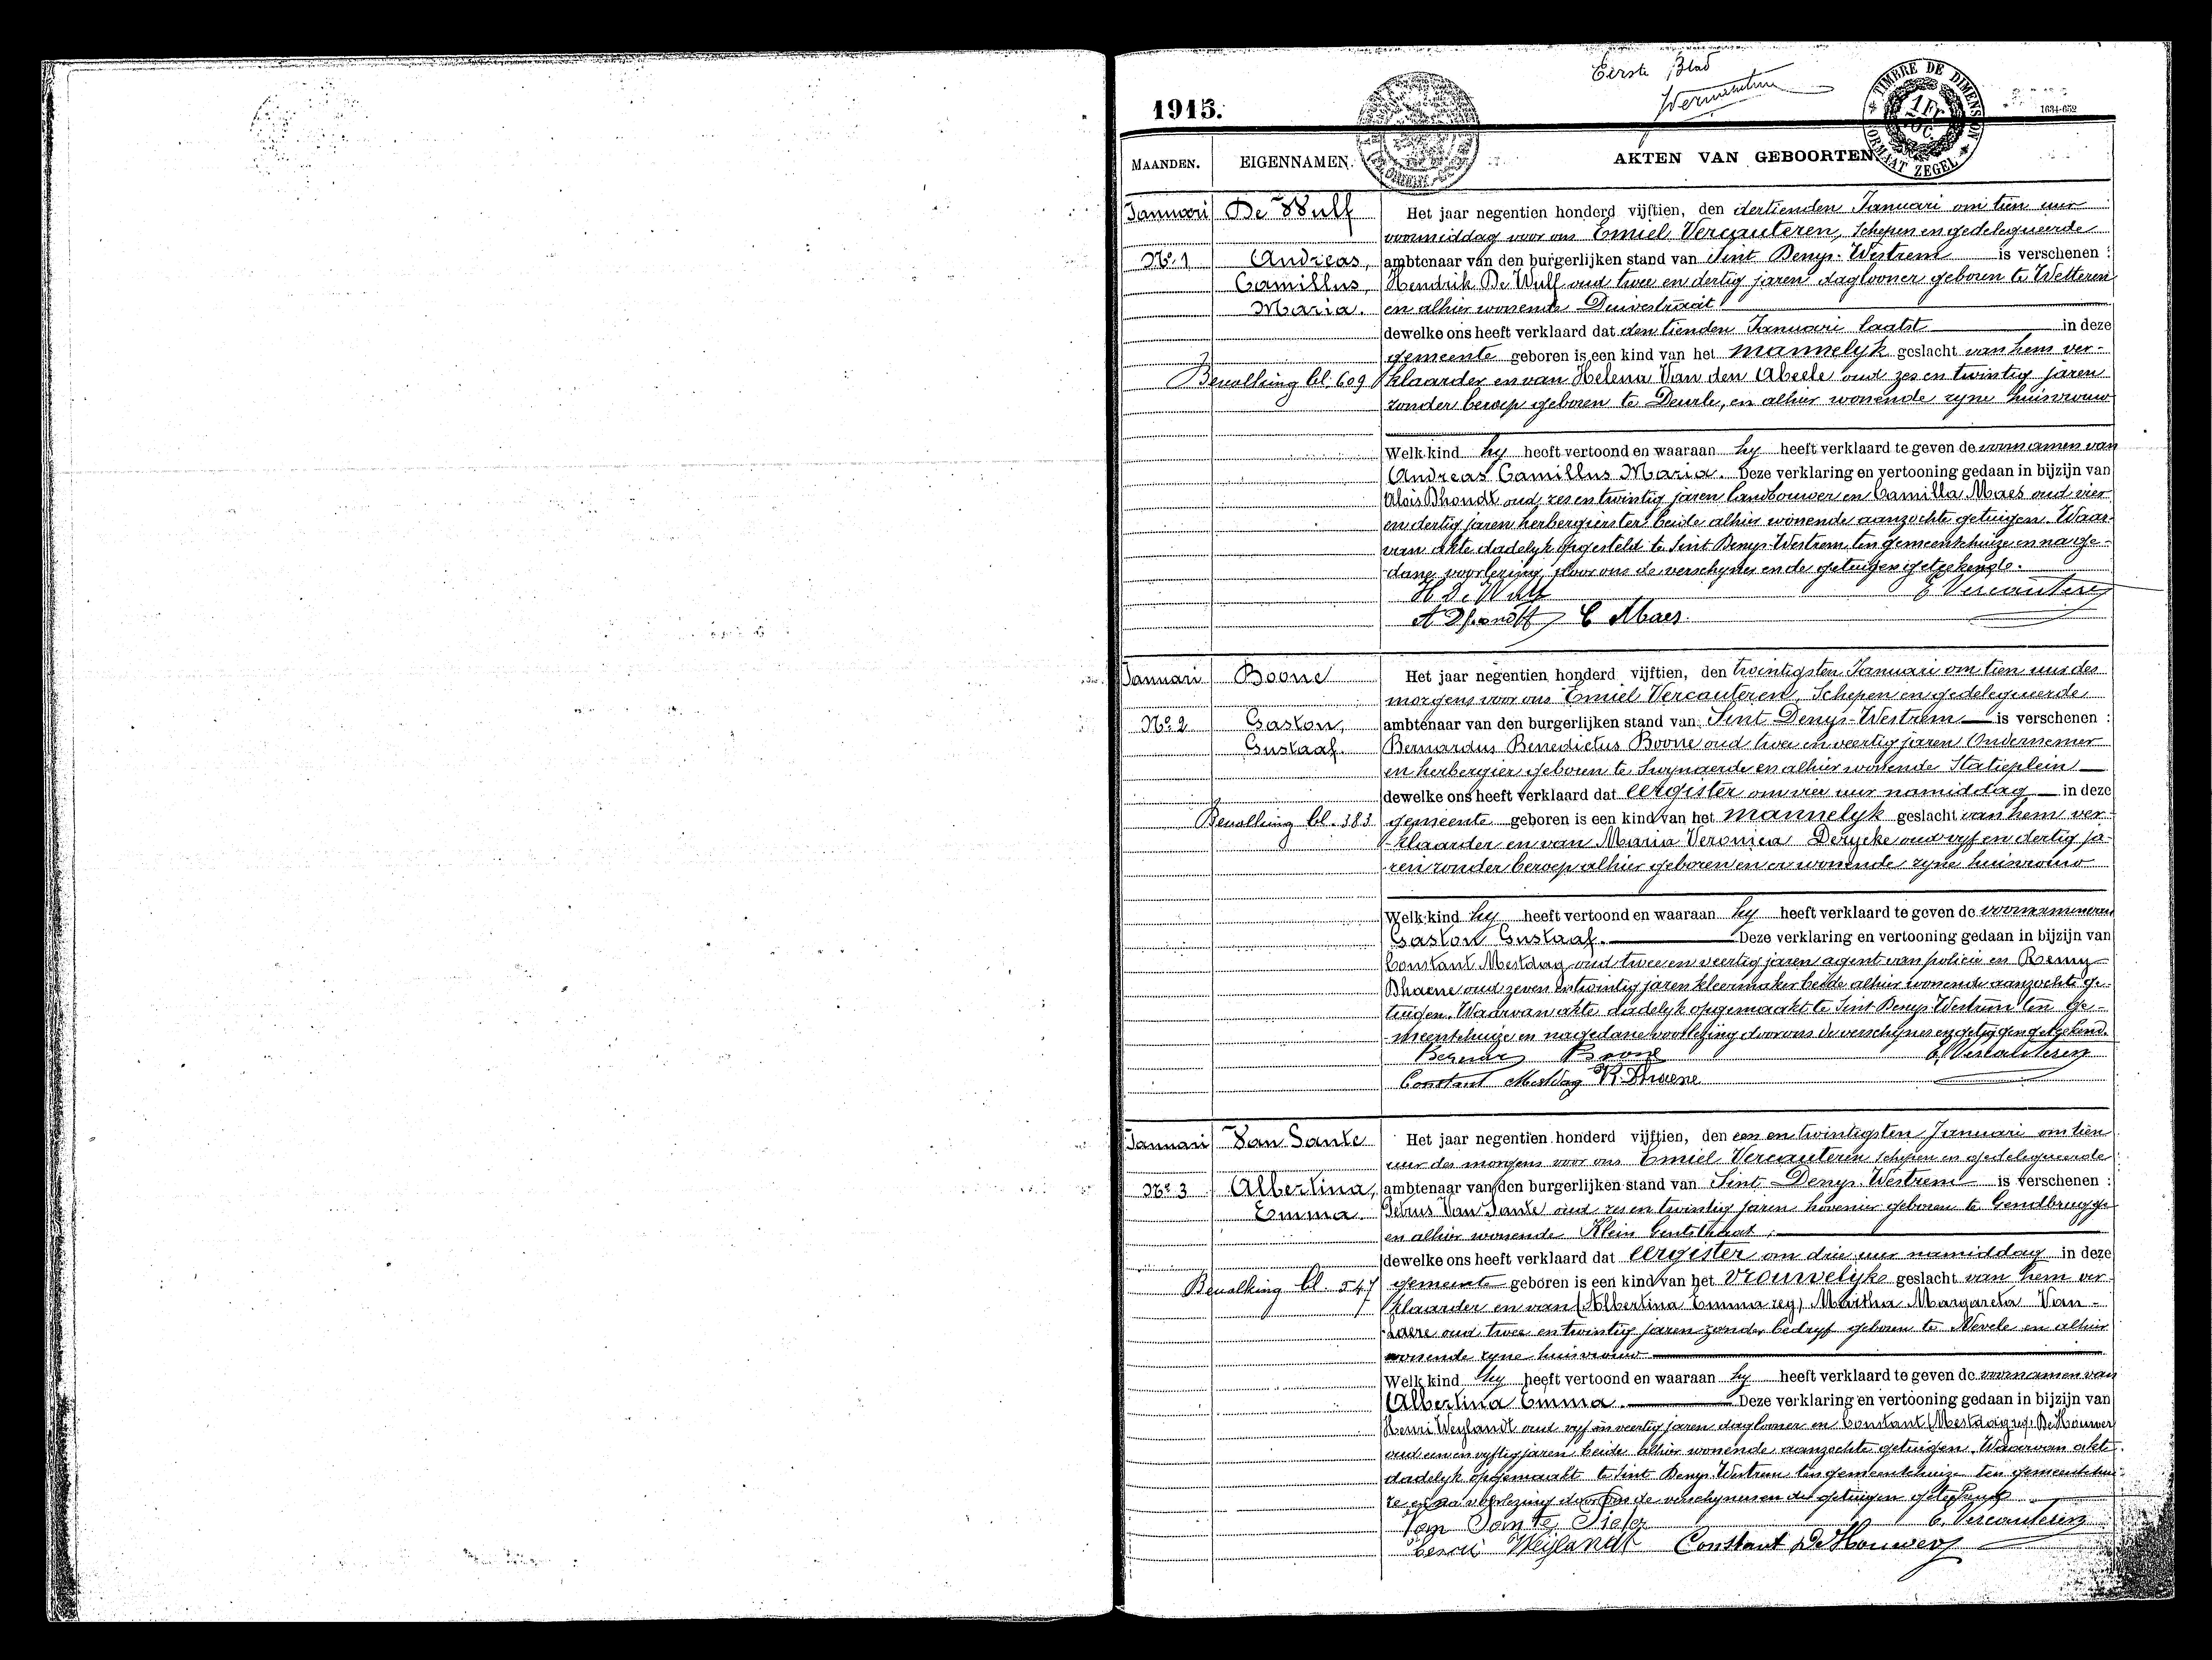 Eerste Blad
1915.
TIMBRE DE DIMENSION
1 FR
ZEGEL
1634-652
MAANDEN. EIGENNAMEN. AKTEN VAN GEBOORTEN
Januari De Wulf Het jaar negentien honderd vijftien, den dertienden Januari om tien uur
voormiddag voor ons Emiel Vercauteren, Schepen en gedelegueerde
No. 1 Andreas, ambtenaar van den burgerlijken stand van Sint Denys-Westrem is verschenen :
Camillus, Hendrik De Wulf oud twee en dertig jaren daglooner geboren te Wetteren
Maria. en alhier wonende
dewelke ons heeft verklaard dat den tienden Januari laatst in deze
gemeente geboren is een kind van het mannelyk geslacht van hem ver-
Bevolking bl. 609 klaarder en van Helena Van den Abeele oud zes en twintig jaren
zonder beroep geboren te Deurle, en alhier wonende zyne huisvrouw
Welk kind hy heeft vertoond en waaraan hy heeft verklaard te geven de voornamen van
Andreas Camillus Maria. Deze verklaring en vertooning gedaan in bijzijn van
Alois Dhondt oud zes en twintig jaren landbouwer en Camilla Maes oud vier
en dertig jaren herbergierster beide alhier wonende aanzochte getuigen. Waar-
van akte dadelyk opgesteld te Sint Denys-Westrem ten gemeentehuize en na ge-
dane voorlezing door ons de verschyner en de getuigen geteekend.
H De Wulf E Vercauteren
A Dhondt C Maes
Januari Boone Het jaar negentien honderd vijftien, den twintigsten Januari om tien uur des
morgens voor ons Emiel Vercauteren Schepen en gedelegueerde
No. 2 Gaston, ambtenaar van den burgerlijken stand van Sint Denys-Westrem is verschenen :
Gustaaf. Bernardus Benedictus Boone oud twee en veertig jaren Ondernemer
en herbergier geboren te Swynaerde en alhier wonende Statieplein
dewelke ons heeft verklaard dat eergister om vier uur namiddag in deze
Bevolking bl. 383 gemeente geboren is een kind van het mannelyk geslacht van hem ver-
klaarder en van Maria Veronica Derycke oud vyf en dertig ja-
ren zonder beroep alhier geboren en er wonende zyne huisvrouw
Welk kind hy heeft vertoond en waaraan hy heeft verklaard te geven de voornamen van
Gaston Gustaaf. Deze verklaring en vertooning gedaan in bijzijn van
Constant Mestdag oud twee en veertig jaren agent van policie en Remy
Dhaene oud zeven en twintig jaren kleermaker beide alhier wonende aanzochte ge-
tuigen. Waarvan akte dadelyk opgemaakt te Sint Denys-Westrem ten ge-
meentehuize en na gedane voorlezing door ons de verschyner en getuigen geteekend.
Bernard Boone E. Vercauteren
Constant Mestdag R. Dhaene
Januari Van Sante Het jaar negentien honderd vijftien, den een en twintigsten Januari om tien
uur des morgens voor ons Emiel Vercauteren schepen en gedelegueerde
No. 3 Albertina, ambtenaar van den burgerlijken stand van Sint Denys-Westrem is verschenen :
Emma Petrus Van Sante oud zes en twintig jaren hovenier geboren te Gendbrugge
en alhier wonende Klein Gentstraat,
dewelke ons heeft verklaard dat eergister om drie uur namiddag in deze
Bevolking bl. 547 gemeente geboren is een kind van het vrouwelyke geslacht van hem ver-
klaarder en van (Albertina Emma reg) Martha Margareta Van-
laere oud twee en twintig jaren zonder bedryf geboren te Nevele en alhier
wonende zyne huisvrouw
Welk kind hy heeft vertoond en waaraan hy heeft verklaard te geven de voornamen van
Albertina Emma. Deze verklaring en vertooning gedaan in bijzijn van
Henri Weylandt oud vyf en veertig jaren daglooner en Constant (Mestdag reg) De Houwer
oud een en vyftig jaren beide alhier wonende aanzochte getuigen. Waarvan akte
dadelyk opgemaakt te Sint Denys-Westrem ten gemeentehuize ten gemeentehui-
ze en na voorlezing door ons de verschyner en de getuigen geteekend
Van Sante Pieter E. Vercauteren
Henri Weylandt Constant De Houwer